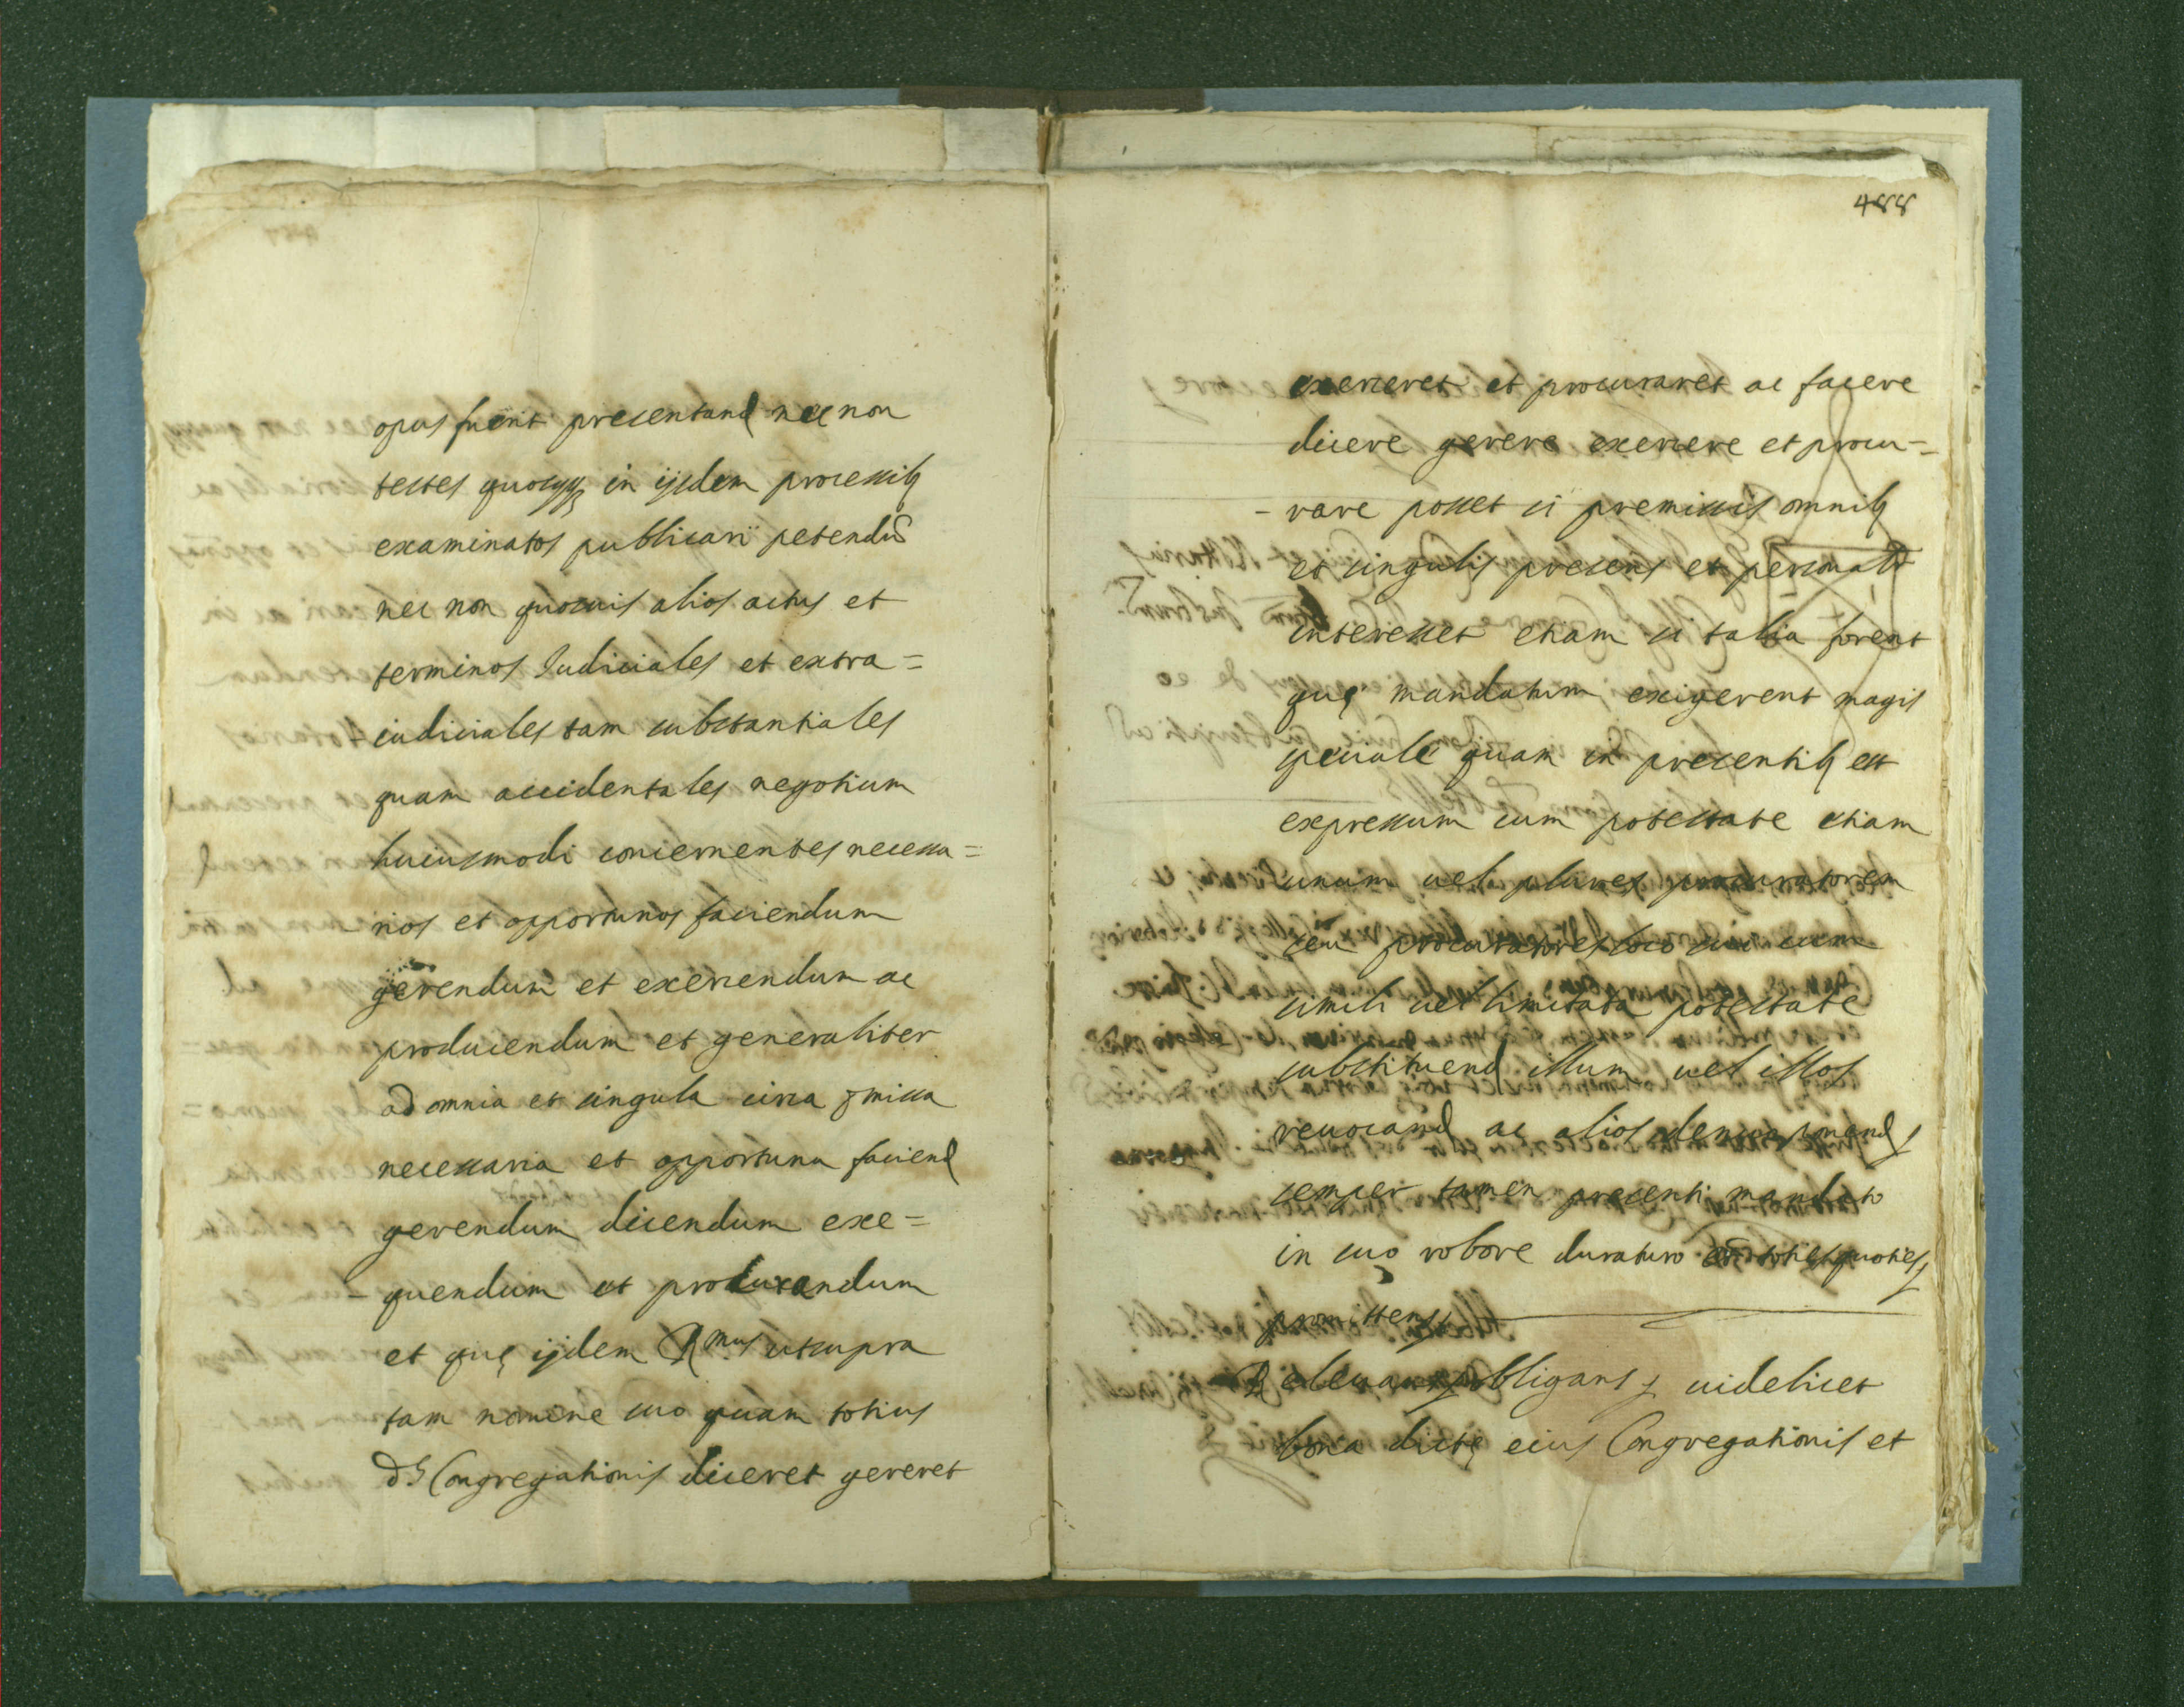 opus fuerit presentand nec non
testes quoscūq in ijsdem processib
examinatos publicari petendū
nec non quosvis alios actus et
terminos Iudiciales et extra=
-iudiciales tam substantiales
quam accidentales negotium
huiusmodi concernentes necessa=
rios et opportunos faciendum
gerendum et exercendum ac
producendum et generaliter
ad omnia et singula circa pmissa
necessaria et opportuna faciend
gerendum dicendum exe=
-quendum et procurandum
et quę ijdem Rmus ut supra
tam nomine suo quam totius
d. Congregationis diceret gereret
488
exerceret et procuraret ac facere
dicere gerere exercere et procu=
-rare posset si premissis omnib
et singulis presens et personalr
interesset etiam si talia forent
quę mandatum exigerent magis
speciale quam in presentib est
expressum cum potestate etiam
unum vel plures procuratorem
seu procuratores loco sui cum
simili vel limitata potestate
substituend illum vel illos
revocand ac alios denuo ponend
semper tamen presenti mandato
in suo robore duraturo toties quoties
promittens
Relevans obligans videlicet
bona dictę eius Congregationis et